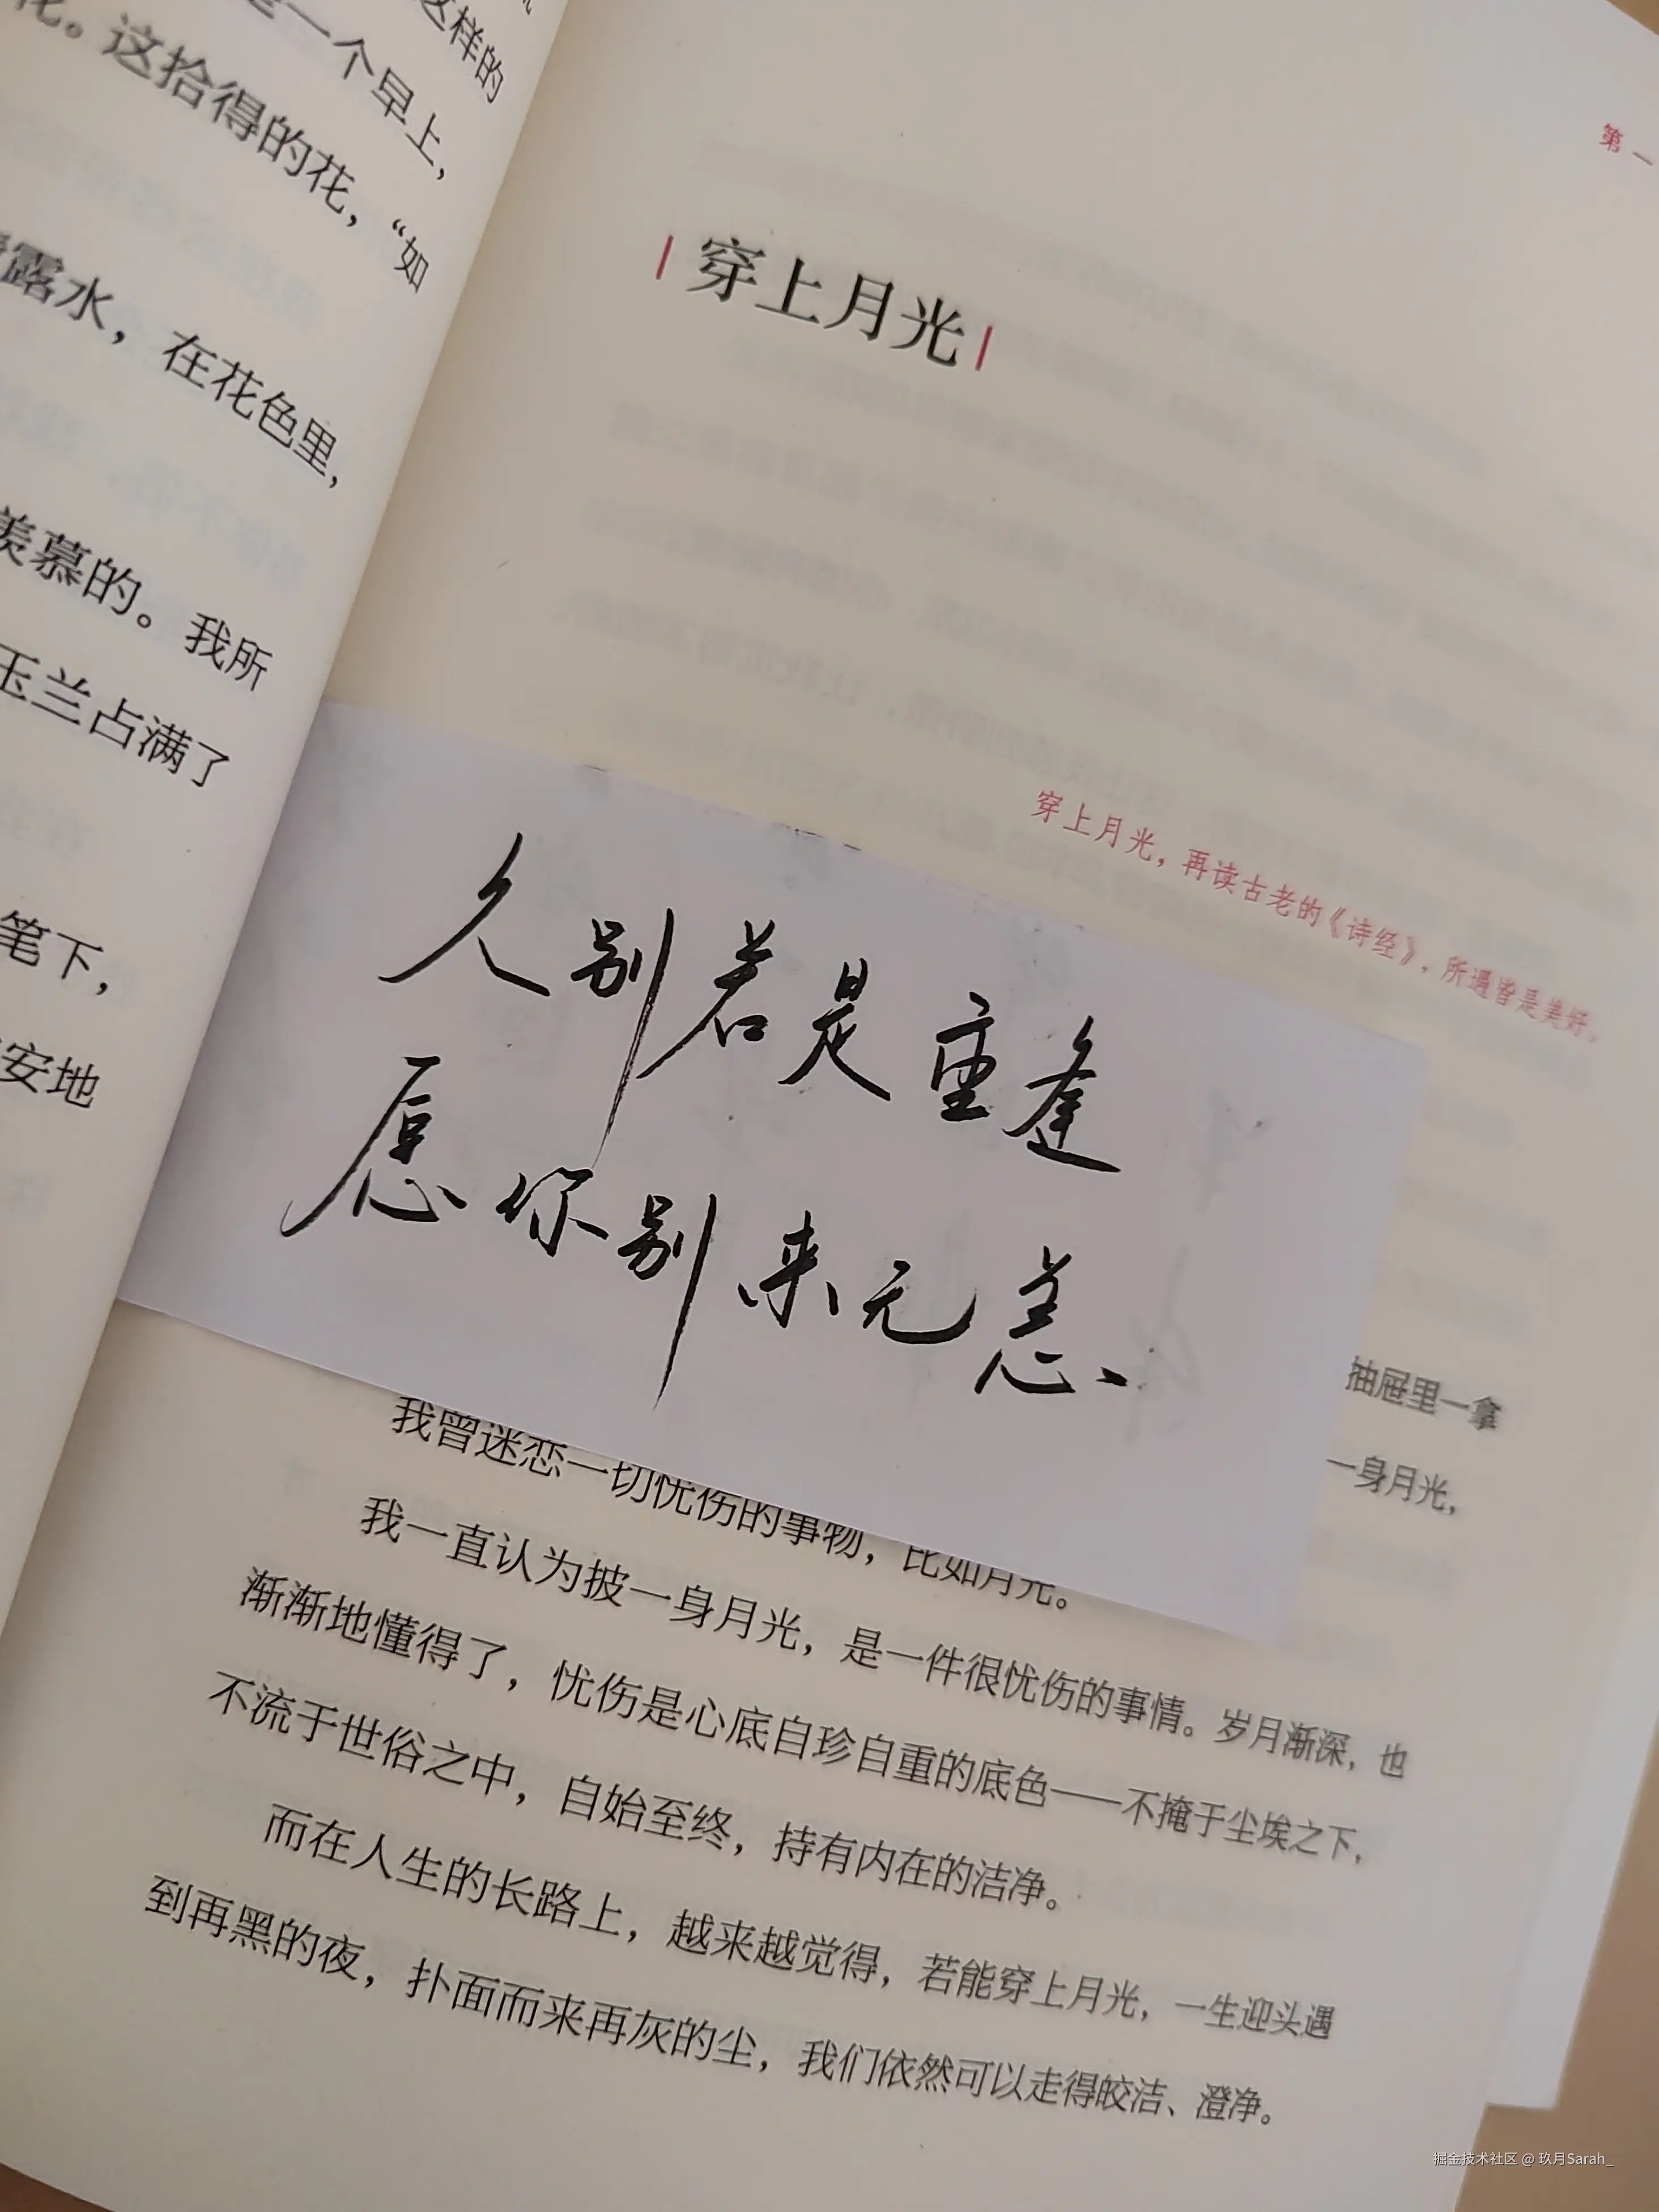 这样的
是一个早上，
花。这拾得的花，“如
露水，在花色里，
羡慕的。我所
玉兰占满了
笔下，
安地
第一
穿上月光
穿上月光，再读古老的《诗经》，所遇皆是美好。
久别若是重逢
愿你别来无恙
抽屉里一拿
一身月光，
我曾迷恋一切忧伤的事物，比如月光。
我一直认为披一身月光，是一件很忧伤的事情。岁月渐深，也
渐渐地懂得了，忧伤是心底自珍自重的底色——不掩于尘埃之下，
不流于世俗之中，自始至终，持有内在的洁净。
而在人生的长路上，越来越觉得，若能穿上月光，一生迎头遇
到再黑的夜，扑面而来再灰的尘，我们依然可以走得皎洁、澄净。
掘金技术社区 @ 玖月Sarah_